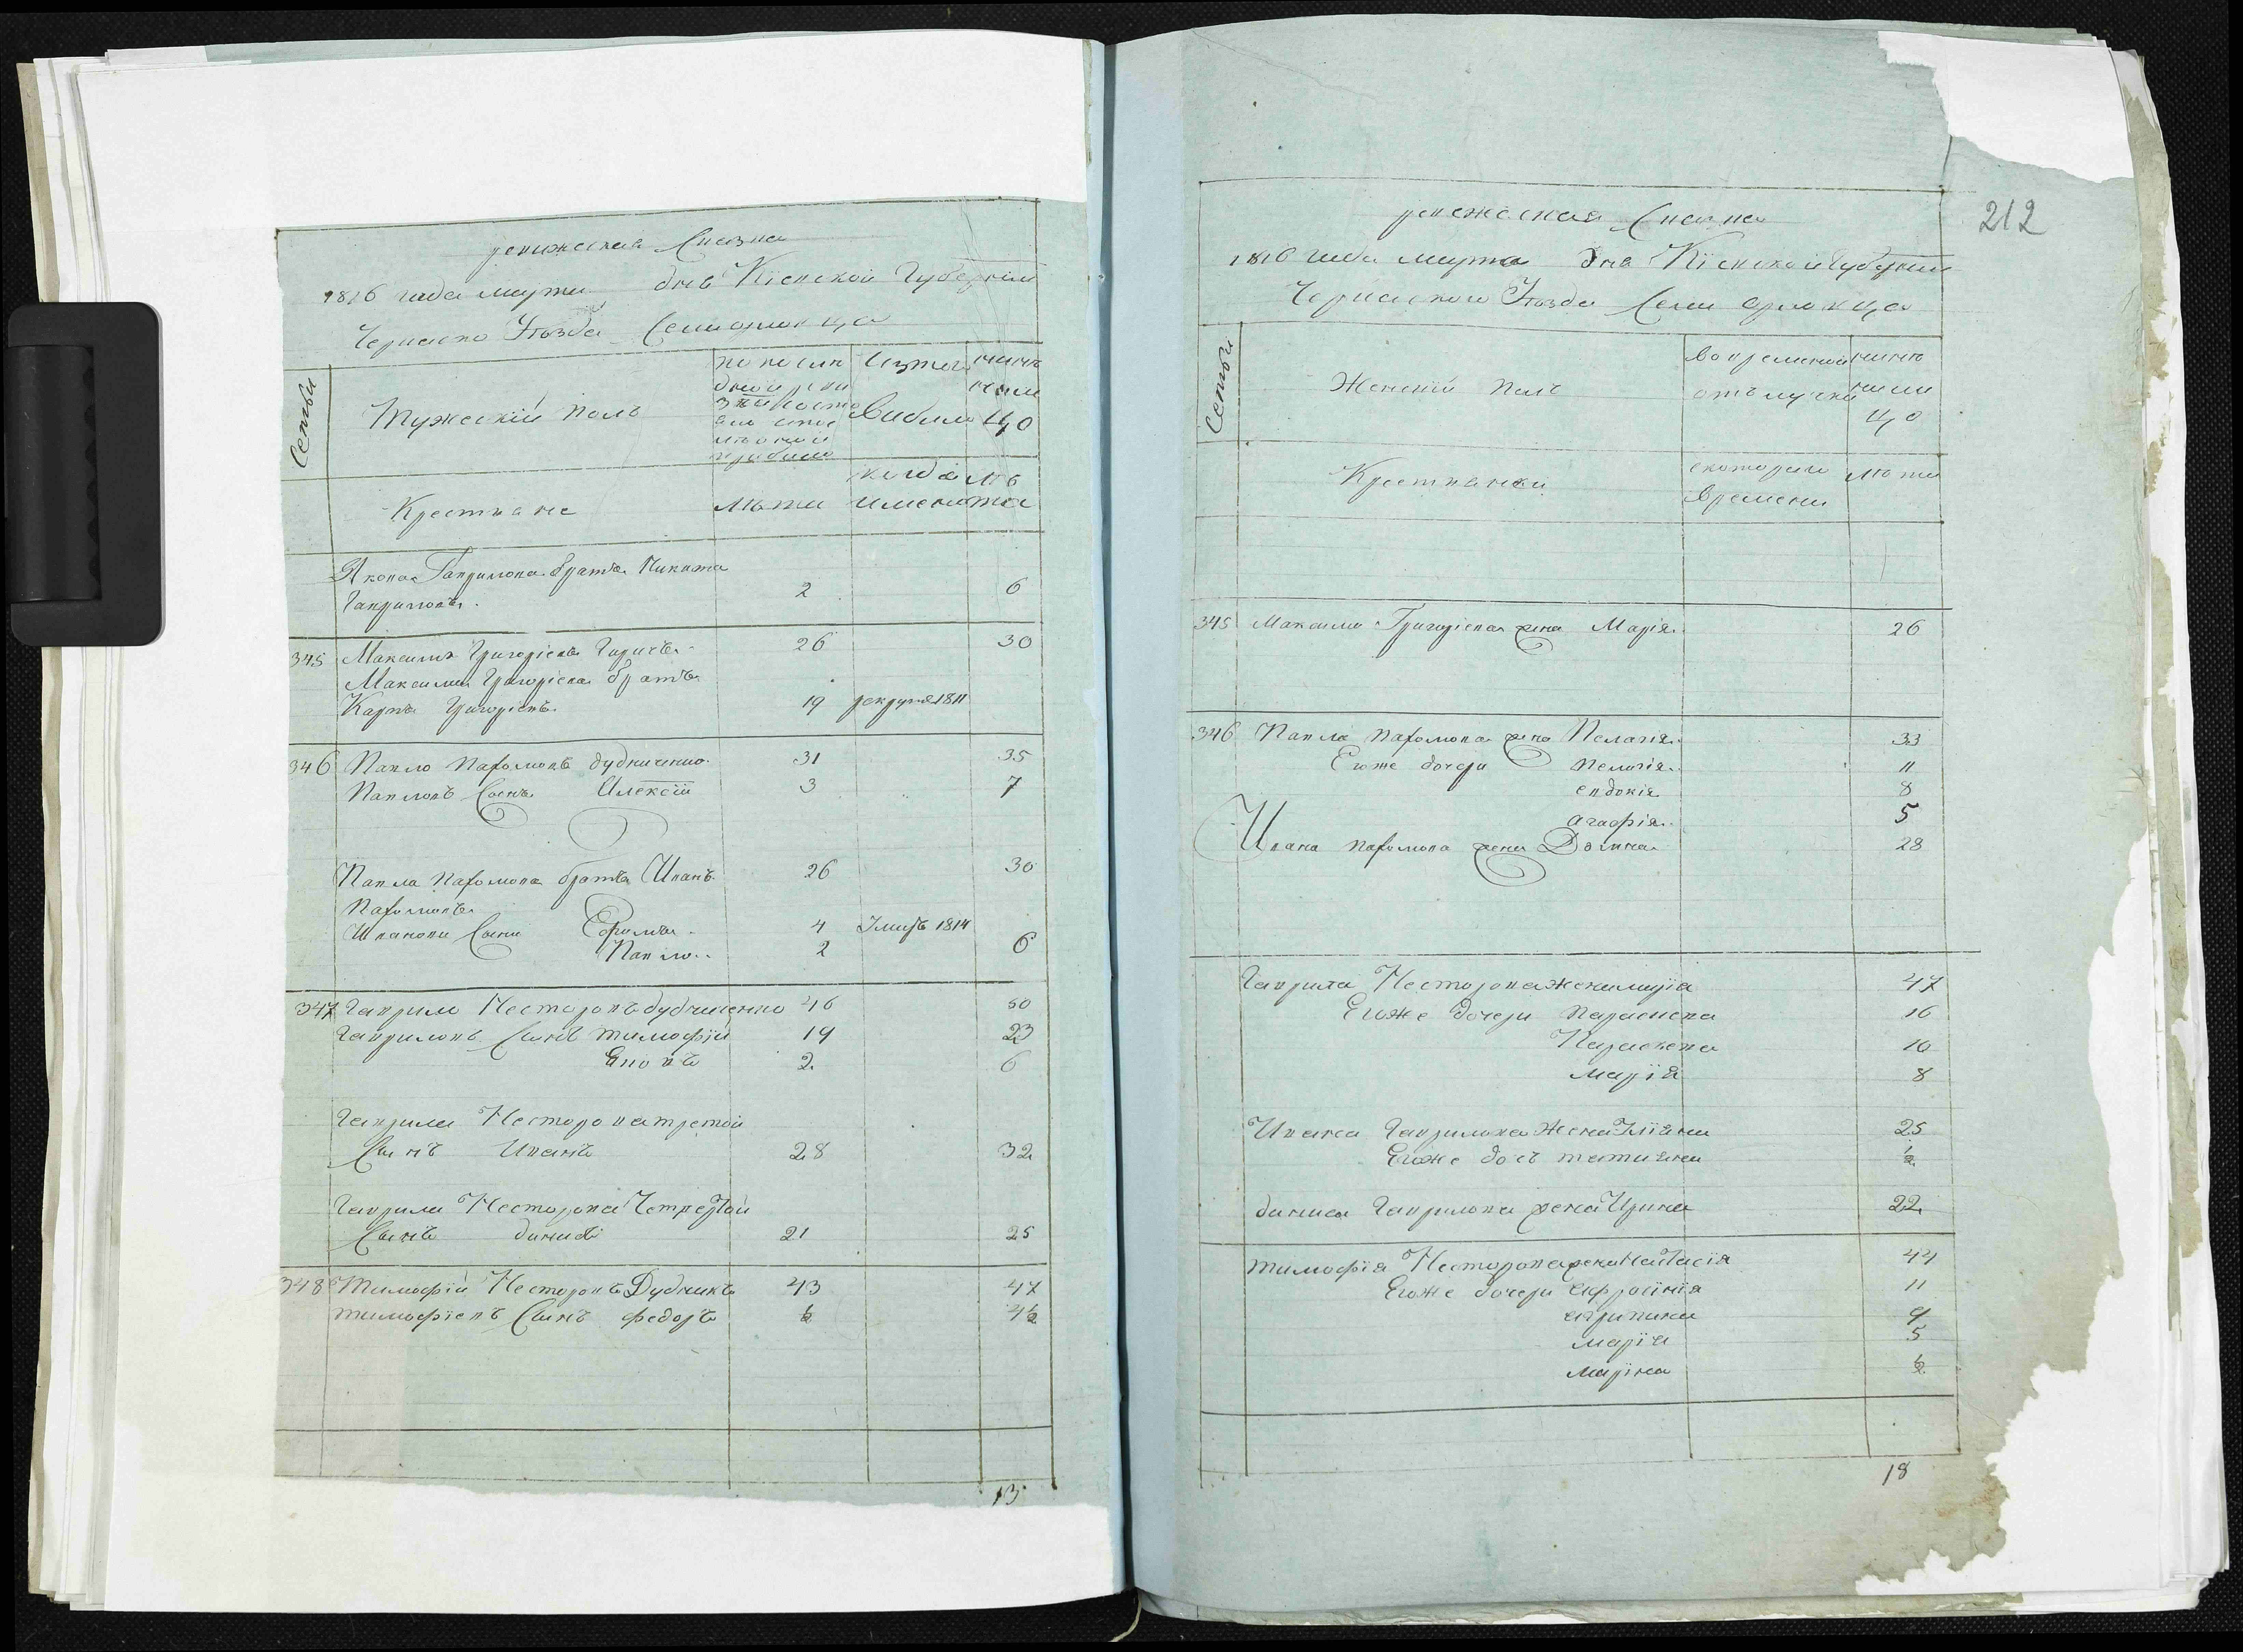 ревижская Сказка
1816 года марта дня Кіевской Губерніи
Черкаско Уѣзда Села орловца
Семьи
Мужескій полъ
по послѣ
дней реви
зіи состо
яло и пос
лѣ оной
прибыло
Изтого
Выбыло
нынѣ
нали
цо
Крестяне
лѣти
когда
имено
лѣ
та
Якова Гаврилова братъ Никита
Гавриловъ. 2 6
345 Максимъ Григоріевъ 26 30
Максима Григоріева братъ
Карпъ Григоріевъ 19 рекрутъ 1811
346 Павло Пахомовъ дудниченко 31 35
Павловъ Сынъ Алексій 3 7
Павла Пахомова братъ Иванъ 26 30
Пахомовъ
Ивановы Сыни Ефимъ 4 Умиръ 1814
Павло 2 6
347 Гаврило Несторовъ дудниченко 46 50
Гавриловъ Сынъ тимофій 19 23
2 6
Гаврила Несторова третой
Сынъ Иванъ 28 32
Гаврила Несторова Четвертой
Сынъ данило 21 25
348 Тимофій Несторовъ Дудникъ 43 47
тимофіевъ Сынъ федоръ ½ 4½
13
212
ревижская Сказка
1816 года марта дня Кіевской Губерніи
Черкаского Уѣзда Села орловца
Семьи
Женскій полъ
во временой
отълучки
нынѣ
нали
цо
Крестянки
скоторого
времени
лѣти
345 Максима Григоріева жена Марія 26
346 Павла Пахомова жена Пелагія 33
Егоже дочери Пелагія 11
евдокія 8
агафія 5
Ивана Пахомова жена Домна 28
Гаврила Несторова жена марія 47
Егоже дочери Параскева 16
Параскева 10
марія 8
Ивана Гаврилова Жена Улияна 25
Егоже дочъ татияна ½
данила Гаврилова жена Ирина 22
тимофія Несторова жена Настасія 44
Егоже дочери ефросінія 11
агрипина 9
марія 5
маріна ½
18